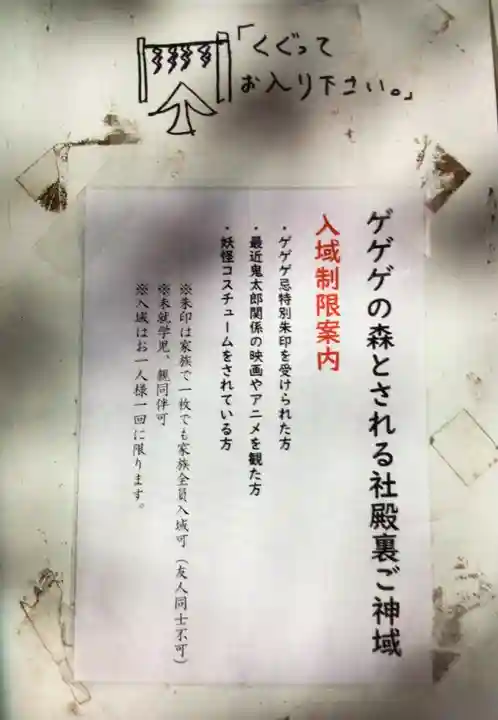 「くぐって
お入り下さい。」
ゲゲゲの森とされる社殿裏ご神域
入域制限案内
・ゲゲゲ忌特別朱印を受けられた方
・最近鬼太郎関係の映画やアニメを観た方
・妖怪コスチュームをされている方
※朱印は家族で一枚でも家族全員入域可（友人同士不可）
※未就学児、親同伴可
※入域はお一人様一回に限ります。